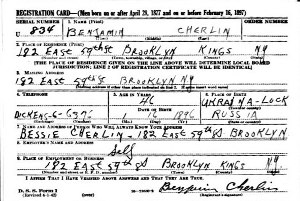 REGISTRATION CARD—(Men born on or after April 28, 1877 and on or before February 16, 1897)
SERIAL NUMBER 1. NAME (Print) ORDER NUMBER
U 834 BENJAMIN CHERLIN
2. PLACE OF RESIDENCE (Print)
182 EAST 59th St BROOKLYN KINGS N.Y.
[THE PLACE OF RESIDENCE GIVEN ON THE LINE ABOVE WILL DETERMINE LOCAL BOARD
JURISDICTION; LINE 2 OF REGISTRATION CERTIFICATE WILL BE IDENTICAL]
3. MAILING ADDRESS
182 EAST 59th St BROOKLYN N.Y.
4. TELEPHONE 5. AGE IN YEARS 6. PLACE OF BIRTH
46
DATE OF BIRTH
DICKENS-6-6376 16 1896 RUSSIA
7. NAME AND ADDRESS OF PERSON WHO WILL ALWAYS KNOW YOUR ADDRESS
BESSIE CHERLIN - 182 EAST 59th St BROOKLYN
8. EMPLOYER'S NAME AND ADDRESS
Self
9. PLACE OF EMPLOYMENT OR BUSINESS
182 EAST 59th St BROOKLYN KINGS N.Y.
I AFFIRM THAT I HAVE VERIFIED ABOVE ANSWERS AND THAT THEY ARE TRUE.
D. S. S. Form 1
Benjamin Cherlin